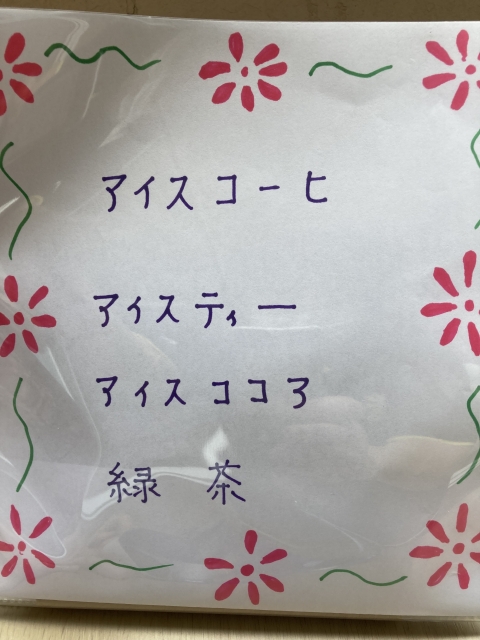 アイスコーヒ
アイスティー
アイスココア
緑 茶